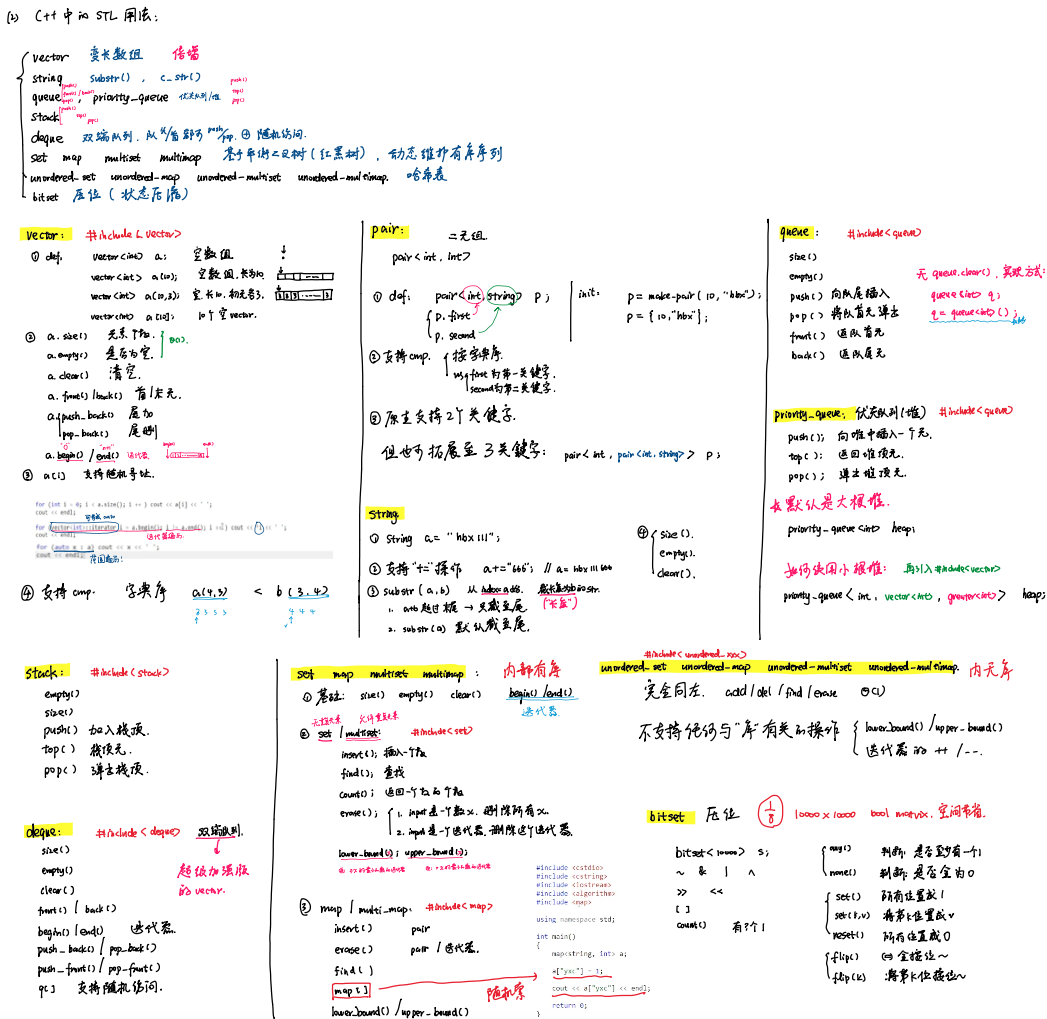 (2) C++ 中的 STL 用法:
vector 变长数组 倍增
string substr(), c_str()
queue push() front()/back() pop(), priority_queue 优先队列/堆 push() top() pop()
stack push() top() pop()
deque 双端队列. 队头/首都可 push/pop. ⊕ 随机访问.
set map multiset multimap 基于平衡二叉树(红黑树), 动态维护有序序列
unordered_set unordered_map unordered_multiset unordered_multimap. 哈希表
bitset 压位 (状态压缩)
vector: #include <vector>
① def. vector<int> a; 空数组.
vector<int> a(10); 空数组, 长为10.
vector<int> a(10,3); 空, 长10, 初元为3. 3 3 3 ...... 3
vector<int> a[10]; 10个空vector.
② a.size() 元素个数.
a.empty() 是否为空. O(1).
a.clear() 清空.
a.front()/back() 首/末元.
a. push_back() 尾加
pop_back() 尾删
a. begin() / end() 迭代器 begin() end()
③ a[i] 支持随机寻址.
for (int i = 0; i < a.size(); i ++ ) cout << a[i] << ' ';
cout << endl;
可替成 auto
for (vector<int>::iterator i = a.begin(); i != a.end(); i ++) cout << *i << ' ';
cout << endl; 迭代器遍历.
for (auto x : a) cout << x << ' ';
cout << endl; 范围遍历!
④ 支持 cmp. 字典序 a(4,3) < b(3,4)
3 3 3 3 4 4 4
pair: 二元组.
pair<int, int>
① def: pair<int, string> p;
p.first
p.second
init: p = make_pair(10, "hbx");
p = {10, "hbx"};
② 支持cmp. 按字典序.
first 为第一关键字.
second为第二关键字.
③ 原生支持2个关键字.
但也可拓展至3关键字: pair<int, pair<int, string>> p;
string
① string a = "hbx111";
② 支持"+="操作 a+="666"; // a = hbx111666
③ substr(a, b) 从
("长度")
1. a+b 超过框 → 只截至尾.
2. substr(a) 默认截至尾.
④ size().
empty().
clear().
queue: #include<queue>
size()
empty()
push() 向队尾插入
pop() 将队首元弹出
front() 返队首元
back() 返队尾元
无 queue.clear(), 实现方式:
queue<int> q;
q = queue<int>();
priority_queue: 优先队列(堆) #include<queue>
push(); 向堆中插入一个元.
top(); 返回堆顶元.
pop(); 弹出堆顶元.
默认是大根堆.
priority_queue<int> heap;
如何使用小根堆: 再引入#include<vector>
priority_queue<int, vector<int>, greater<int>> heap;
stack: #include<stack>
empty()
size()
push() 加入栈顶.
top() 栈顶元.
pop() 弹出栈顶.
deque: #include <deque> 双端队列.
size()
empty()
clear()
超级加强版
的vector.
front() / back()
begin() / end() 迭代器.
push_back() / pop_back()
push_front() / pop_front()
q[] 支持随机访问.
set map multiset multimap : 内部有序
① 基础: size() empty() clear() begin()/end()
迭代器
无重元素 允许重复元素
② set / multiset: #include<set>
insert(); 插入一个数
find(); 查找
count(); 返回一个数的个数
erase(); 1. input是一个数x. 删除所有x.
2. input是一个迭代器. 删除这个迭代器.
lower_bound(); upper_bound();
③ map / multi_map. #include<map>
insert() pair
erase() pair / 迭代器.
find()
map[] 随机索
lower_bound() / upper_bound()
#include <cstdio>
#include <cstring>
#include <iostream>
#include <algorithm>
#include <map>
using namespace std;
int main()
{
map<string, int> a;
a["yxc"] = 1;
cout << a["yxc"] << endl;
return 0;
}
#include<unordered_xxx>
unordered_set unordered_map unordered_multiset unordered_multimap. 内无序
完全同左. add / del / find / erase O(1)
不支持任何与"序"有关的操作 lower_bound() / upper_bound()
迭代器的 ++ / --.
bitset 压位 1/8 10000×10000 bool matrix. 空间节省.
bitset<10000> s;
~ & | ^
>> <<
[]
count() 有?个1
any() 判断: 是否至少有一个1
none() 判断: 是否全为0
set() 所有位置成1
set(k,v) 将第k位置成v
reset() 所有位置成0
flip() ⇔ 全按位~
flip(k) 将第k位按位~